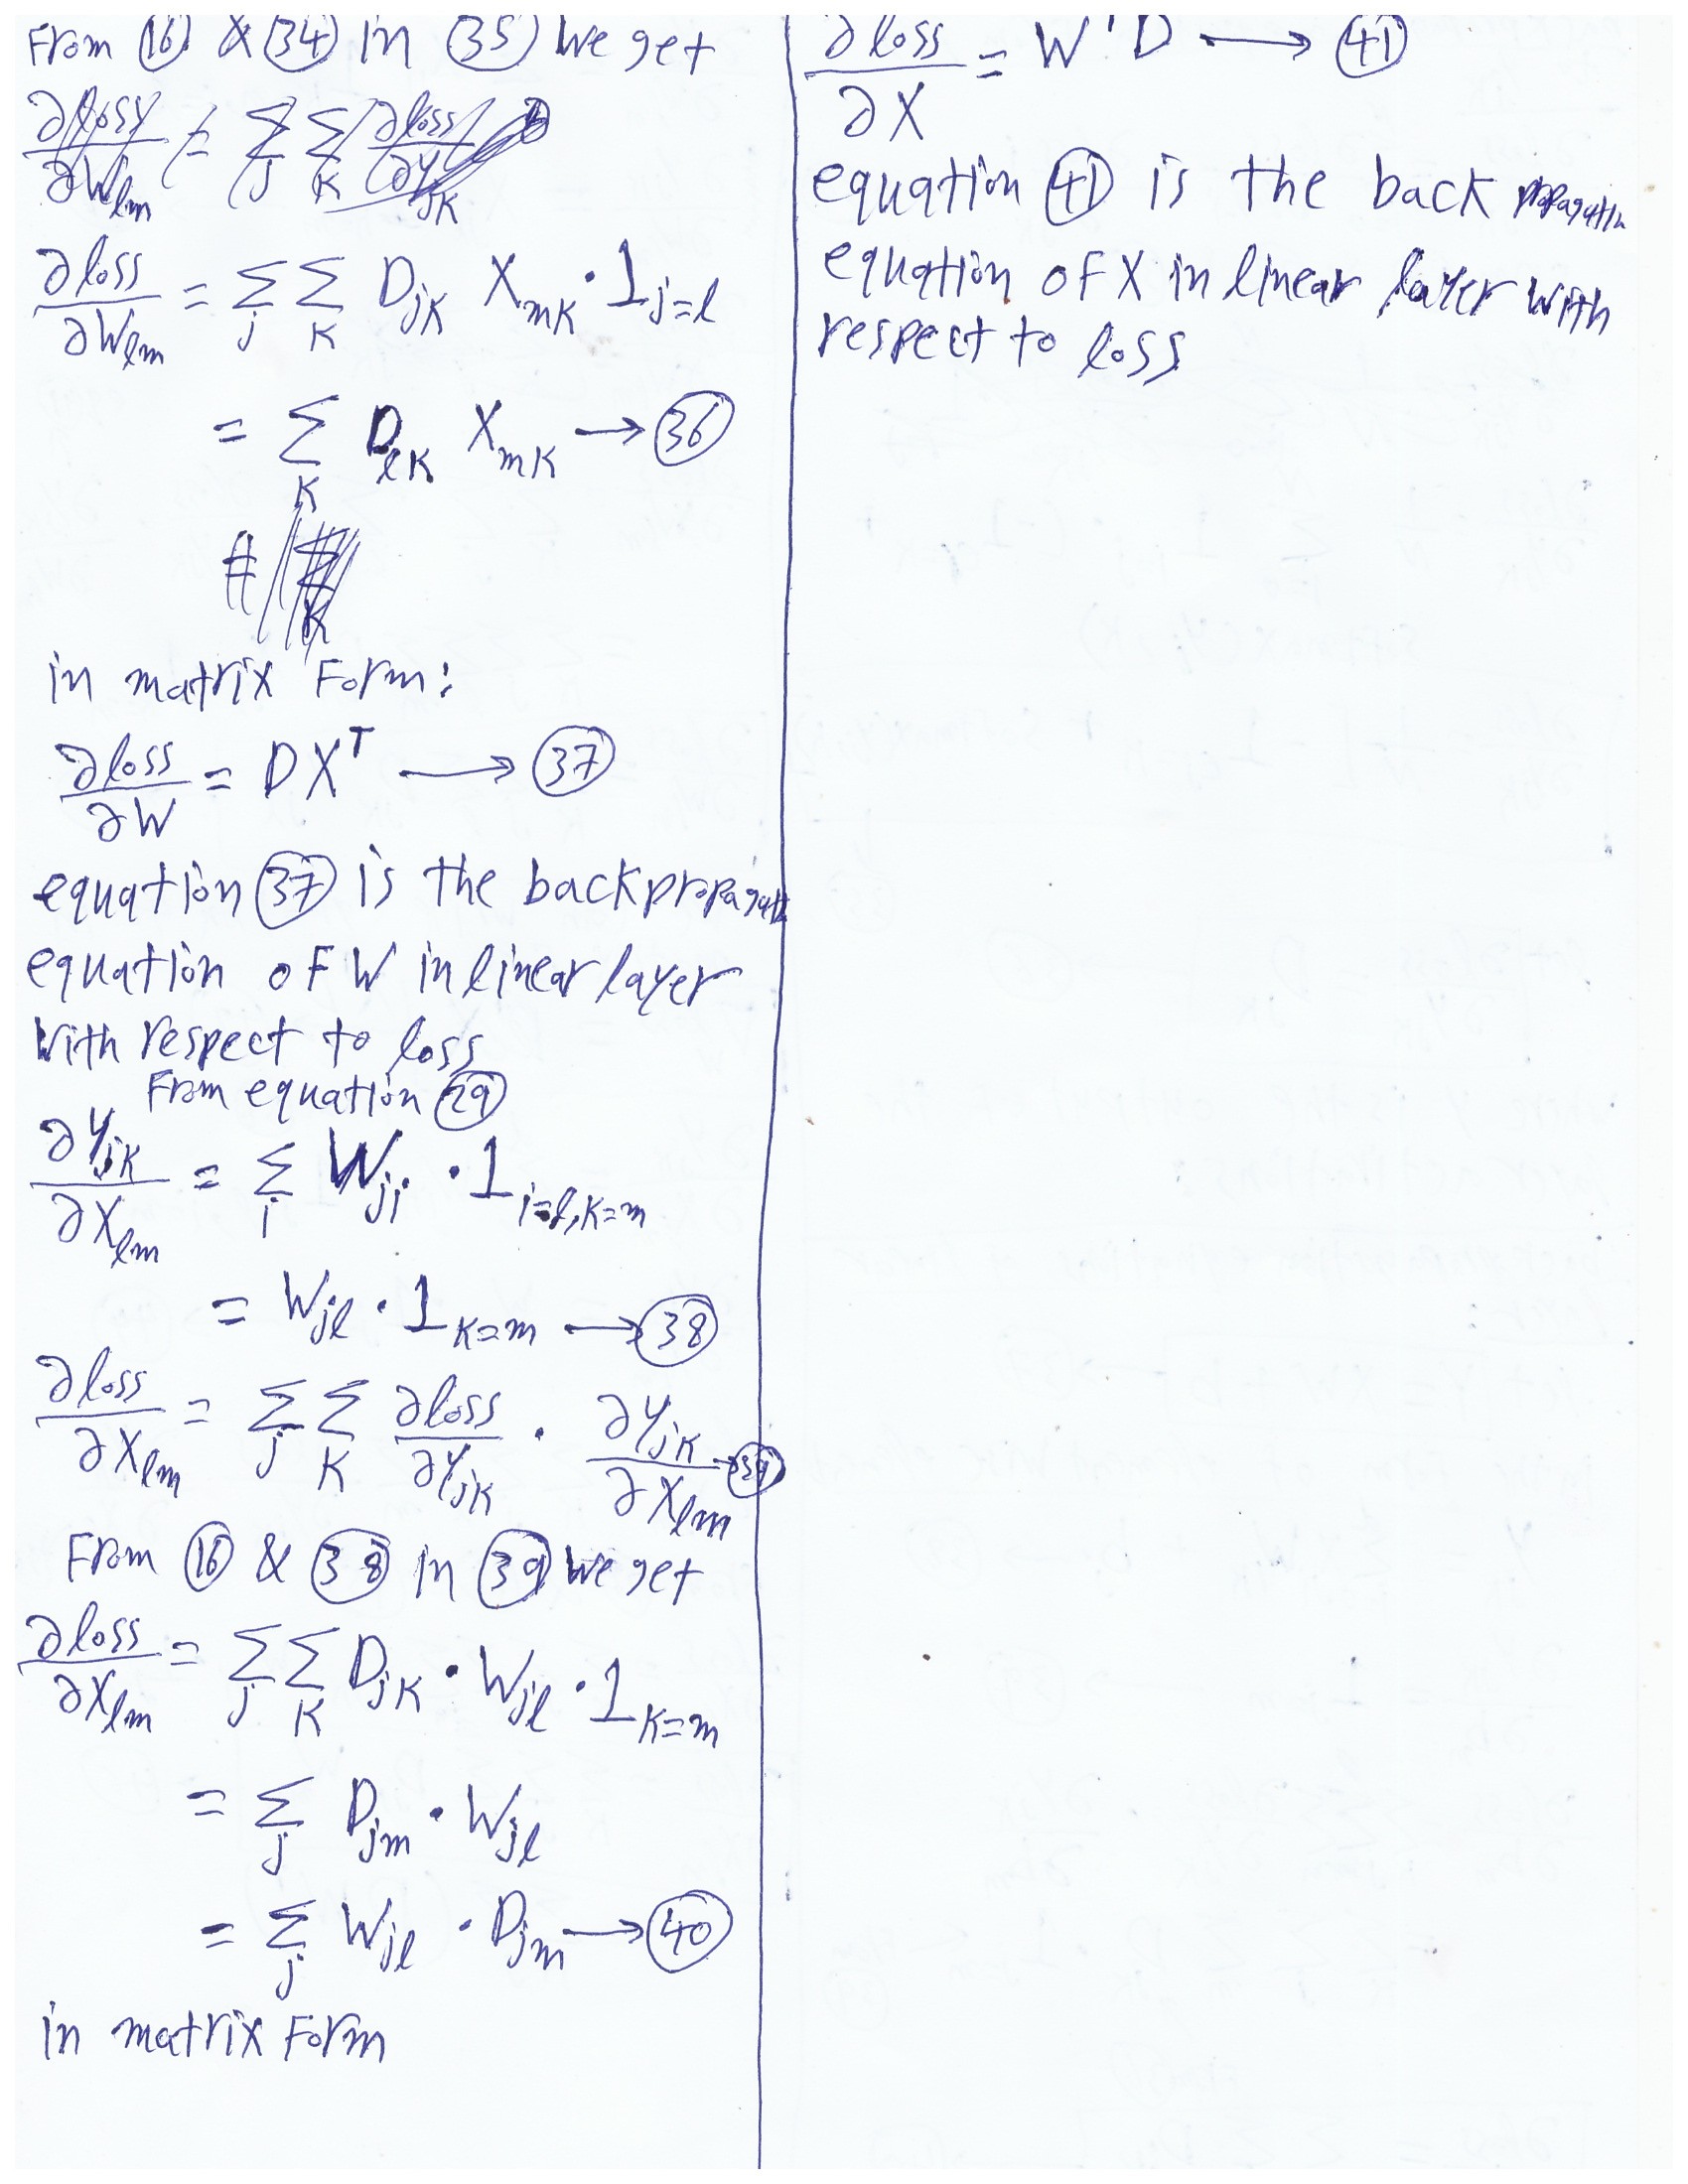 From (16) & (34) in (35) we get
∂loss/∂W_lm = Σ_j Σ_K D_jK X_mK · 1_{j=l}
= Σ_K D_lK X_mK → (36)
in matrix Form:
∂loss/∂W = D X^T → (37)
equation (37) is the backpropagation
equation of W in linear layer
with respect to loss
From equation (29)
∂Y_jK/∂X_lm = Σ_i W_ji · 1_{i=l,K=m}
= W_jl · 1_{K=m} → (38)
∂loss/∂X_lm = Σ_j Σ_K ∂loss/∂Y_jK · ∂Y_jK/∂X_lm → (39)
From (16) & (38) in (39) we get
∂loss/∂X_lm = Σ_j Σ_K D_jK · W_jl · 1_{K=m}
= Σ_j D_jm · W_jl
= Σ_j W_jl · D_jm → (40)
in matrix Form
∂loss/∂X = W^T D → (41)
equation (41) is the back propagation
equation of X in linear layer with
respect to loss